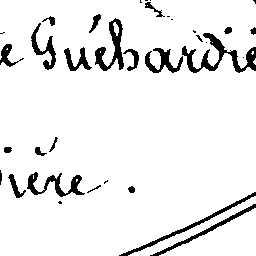 e Guéhardiè
ière.